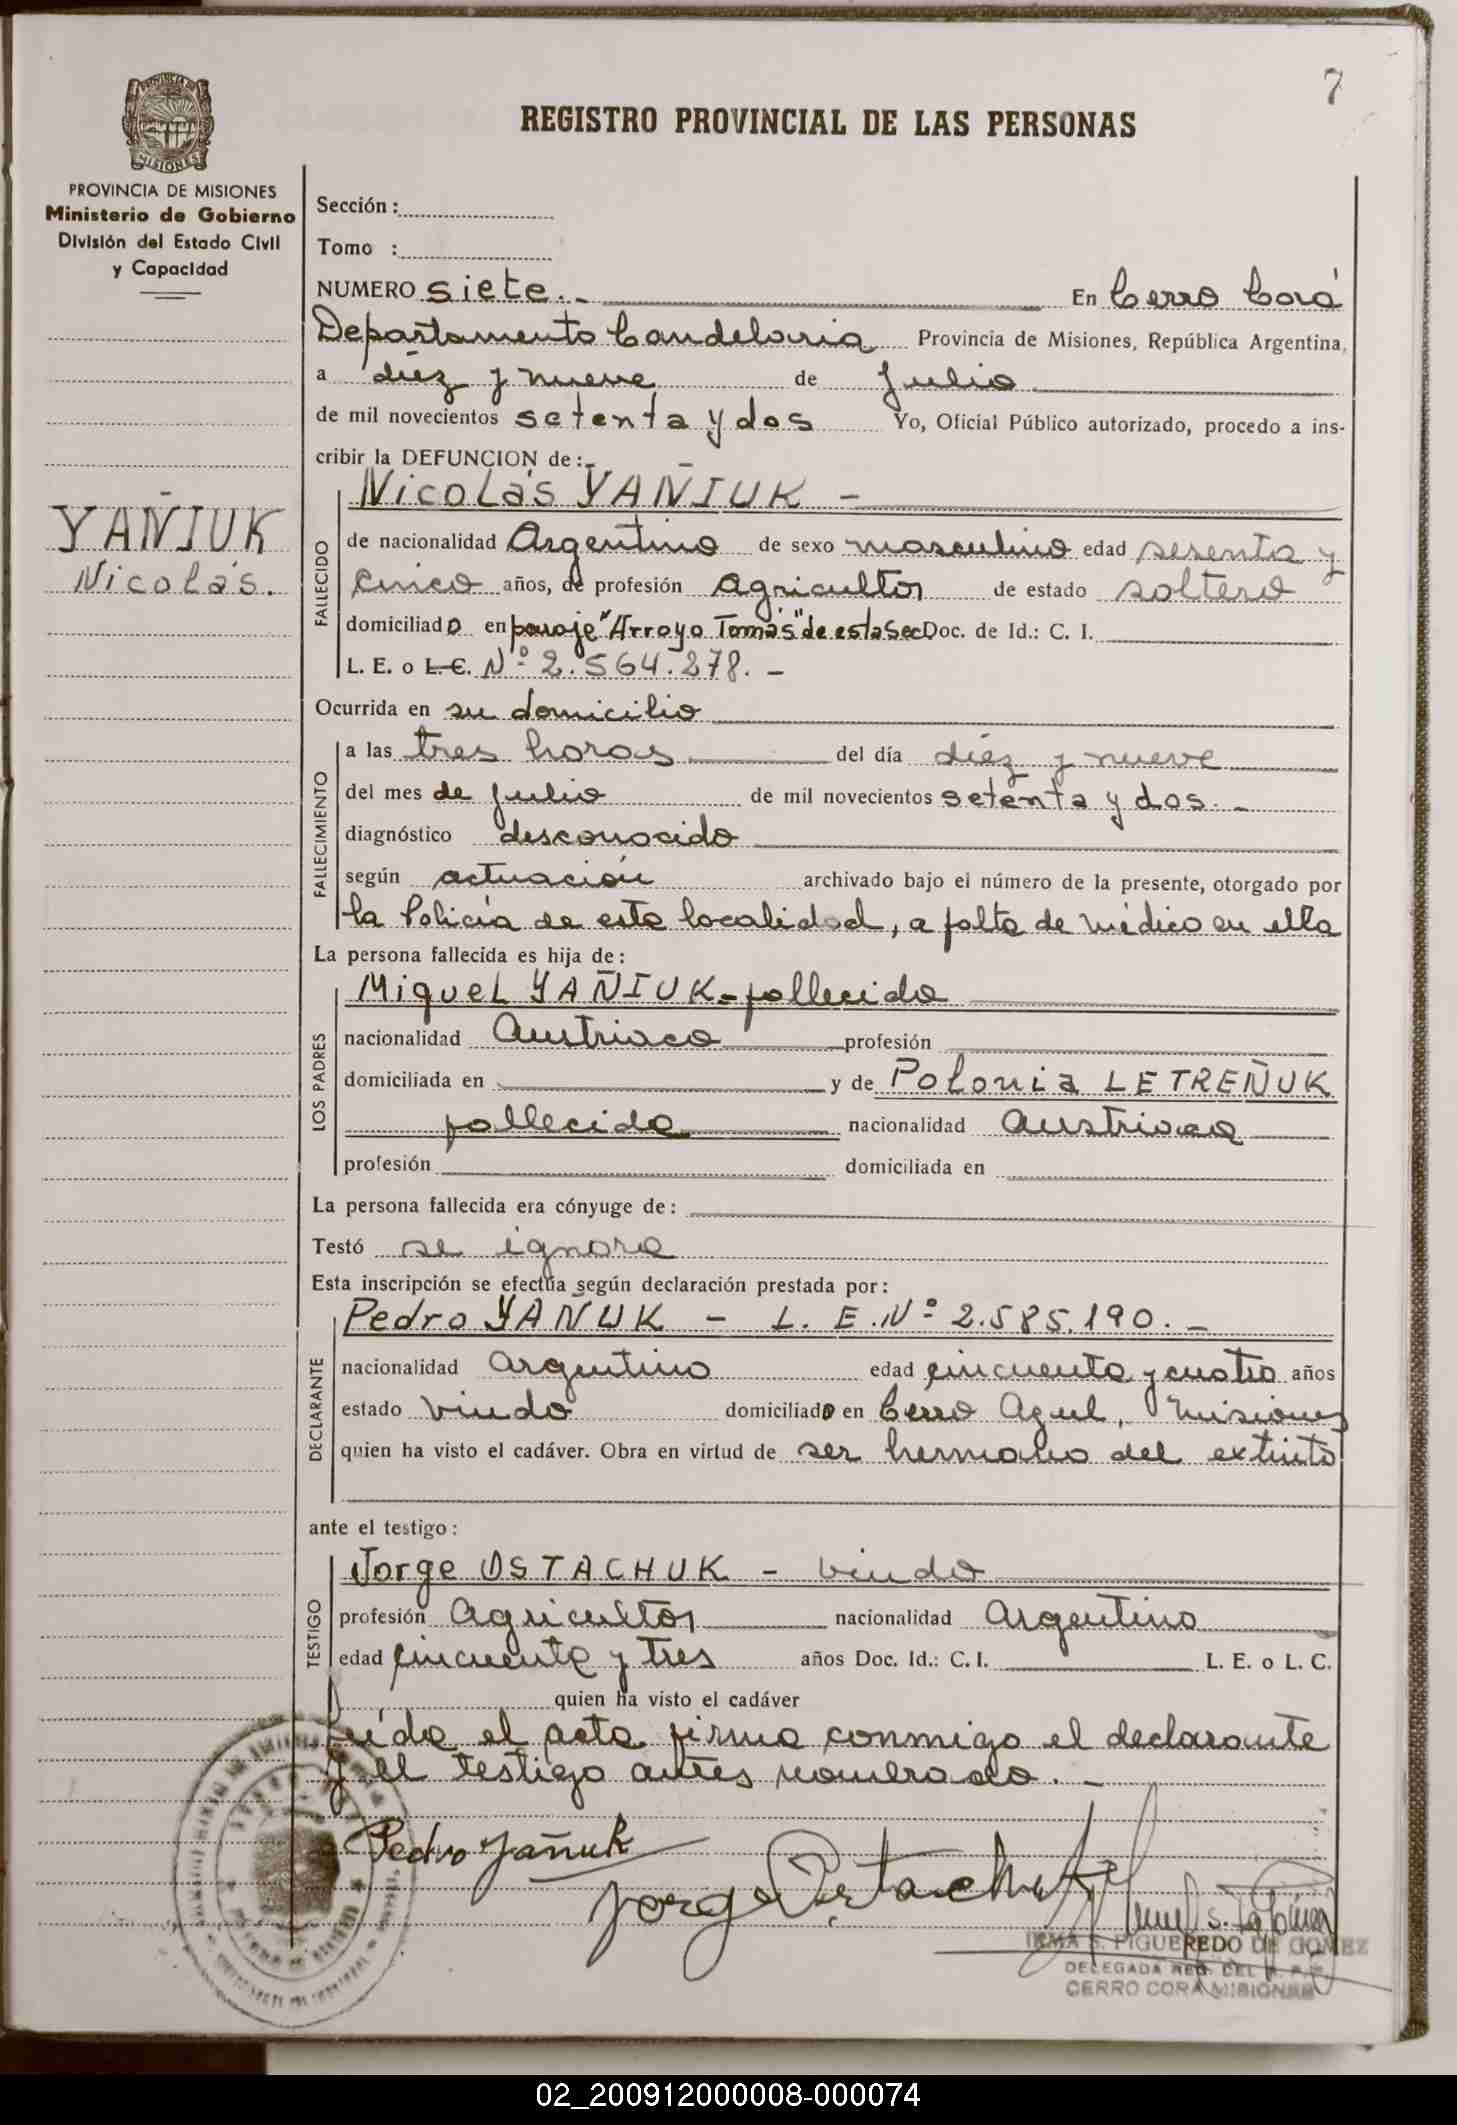 7
REGISTRO PROVINCIAL DE LAS PERSONAS
PROVINCIA DE MISIONES
Ministerio de Gobierno
División del Estado Civil
y Capacidad
YAÑIUK
Nicolás.
Sección:
Tomo :
NUMERO siete.- En Cerro Corá
Departamento Candelaria Provincia de Misiones, República Argentina,
a diéz y nueve de julio
de mil novecientos setenta y dos Yo, Oficial Público autorizado, procedo a ins-
cribir la DEFUNCION de:
Nicolás YAÑIUK -
FALLECIDO
de nacionalidad Argentino de sexo masculino edad sesenta y
cinco años, de profesión Agricultor de estado soltero
domiciliado en paraje "Arroyo Tomás" de esta Sec Doc. de Id.: C. I.
L. E. o L. C. Nº 2.564.278. -
Ocurrida en su domicilio
FALLECIMIENTO
a las tres horas del día diéz y nueve
del mes de julio de mil novecientos setenta y dos. -
diagnóstico desconocido
según actuación archivado bajo el número de la presente, otorgado por
la Policía de esta localidad, a falta de médico en ella
La persona fallecida es hija de:
LOS PADRES
Miguel YAÑIUK - fallecido
nacionalidad Austriaco profesión
domiciliada en y de Polonia LETREÑUK
fallecida nacionalidad Austriaca
profesión domiciliada en
La persona fallecida era cónyuge de:
Testó se ignora
Esta inscripción se efectúa según declaración prestada por:
DECLARANTE
Pedro YAÑUK - L. E. Nº 2.585.190. -
nacionalidad Argentino edad cincuenta y cuatro años
estado viudo domiciliado en Cerro Azul, Misiones
quien ha visto el cadáver. Obra en virtud de ser hermano del extinto
ante el testigo:
TESTIGO
Jorge OSTACHUK - viudo
profesión Agricultor nacionalidad Argentino
edad cincuenta y tres años Doc. Id.: C. I. L. E. o L. C.
quien ha visto el cadáver
Leída el acta firma conmigo el declarante
y el testigo antes nombrado. -
Pedro Yañuk
Jorge Ostachuk
IRMA S. FIGUEREDO DE GOMEZ
DELEGADA REG. DEL R. P. P.
CERRO CORA MISIONES
02_200912000008-000074